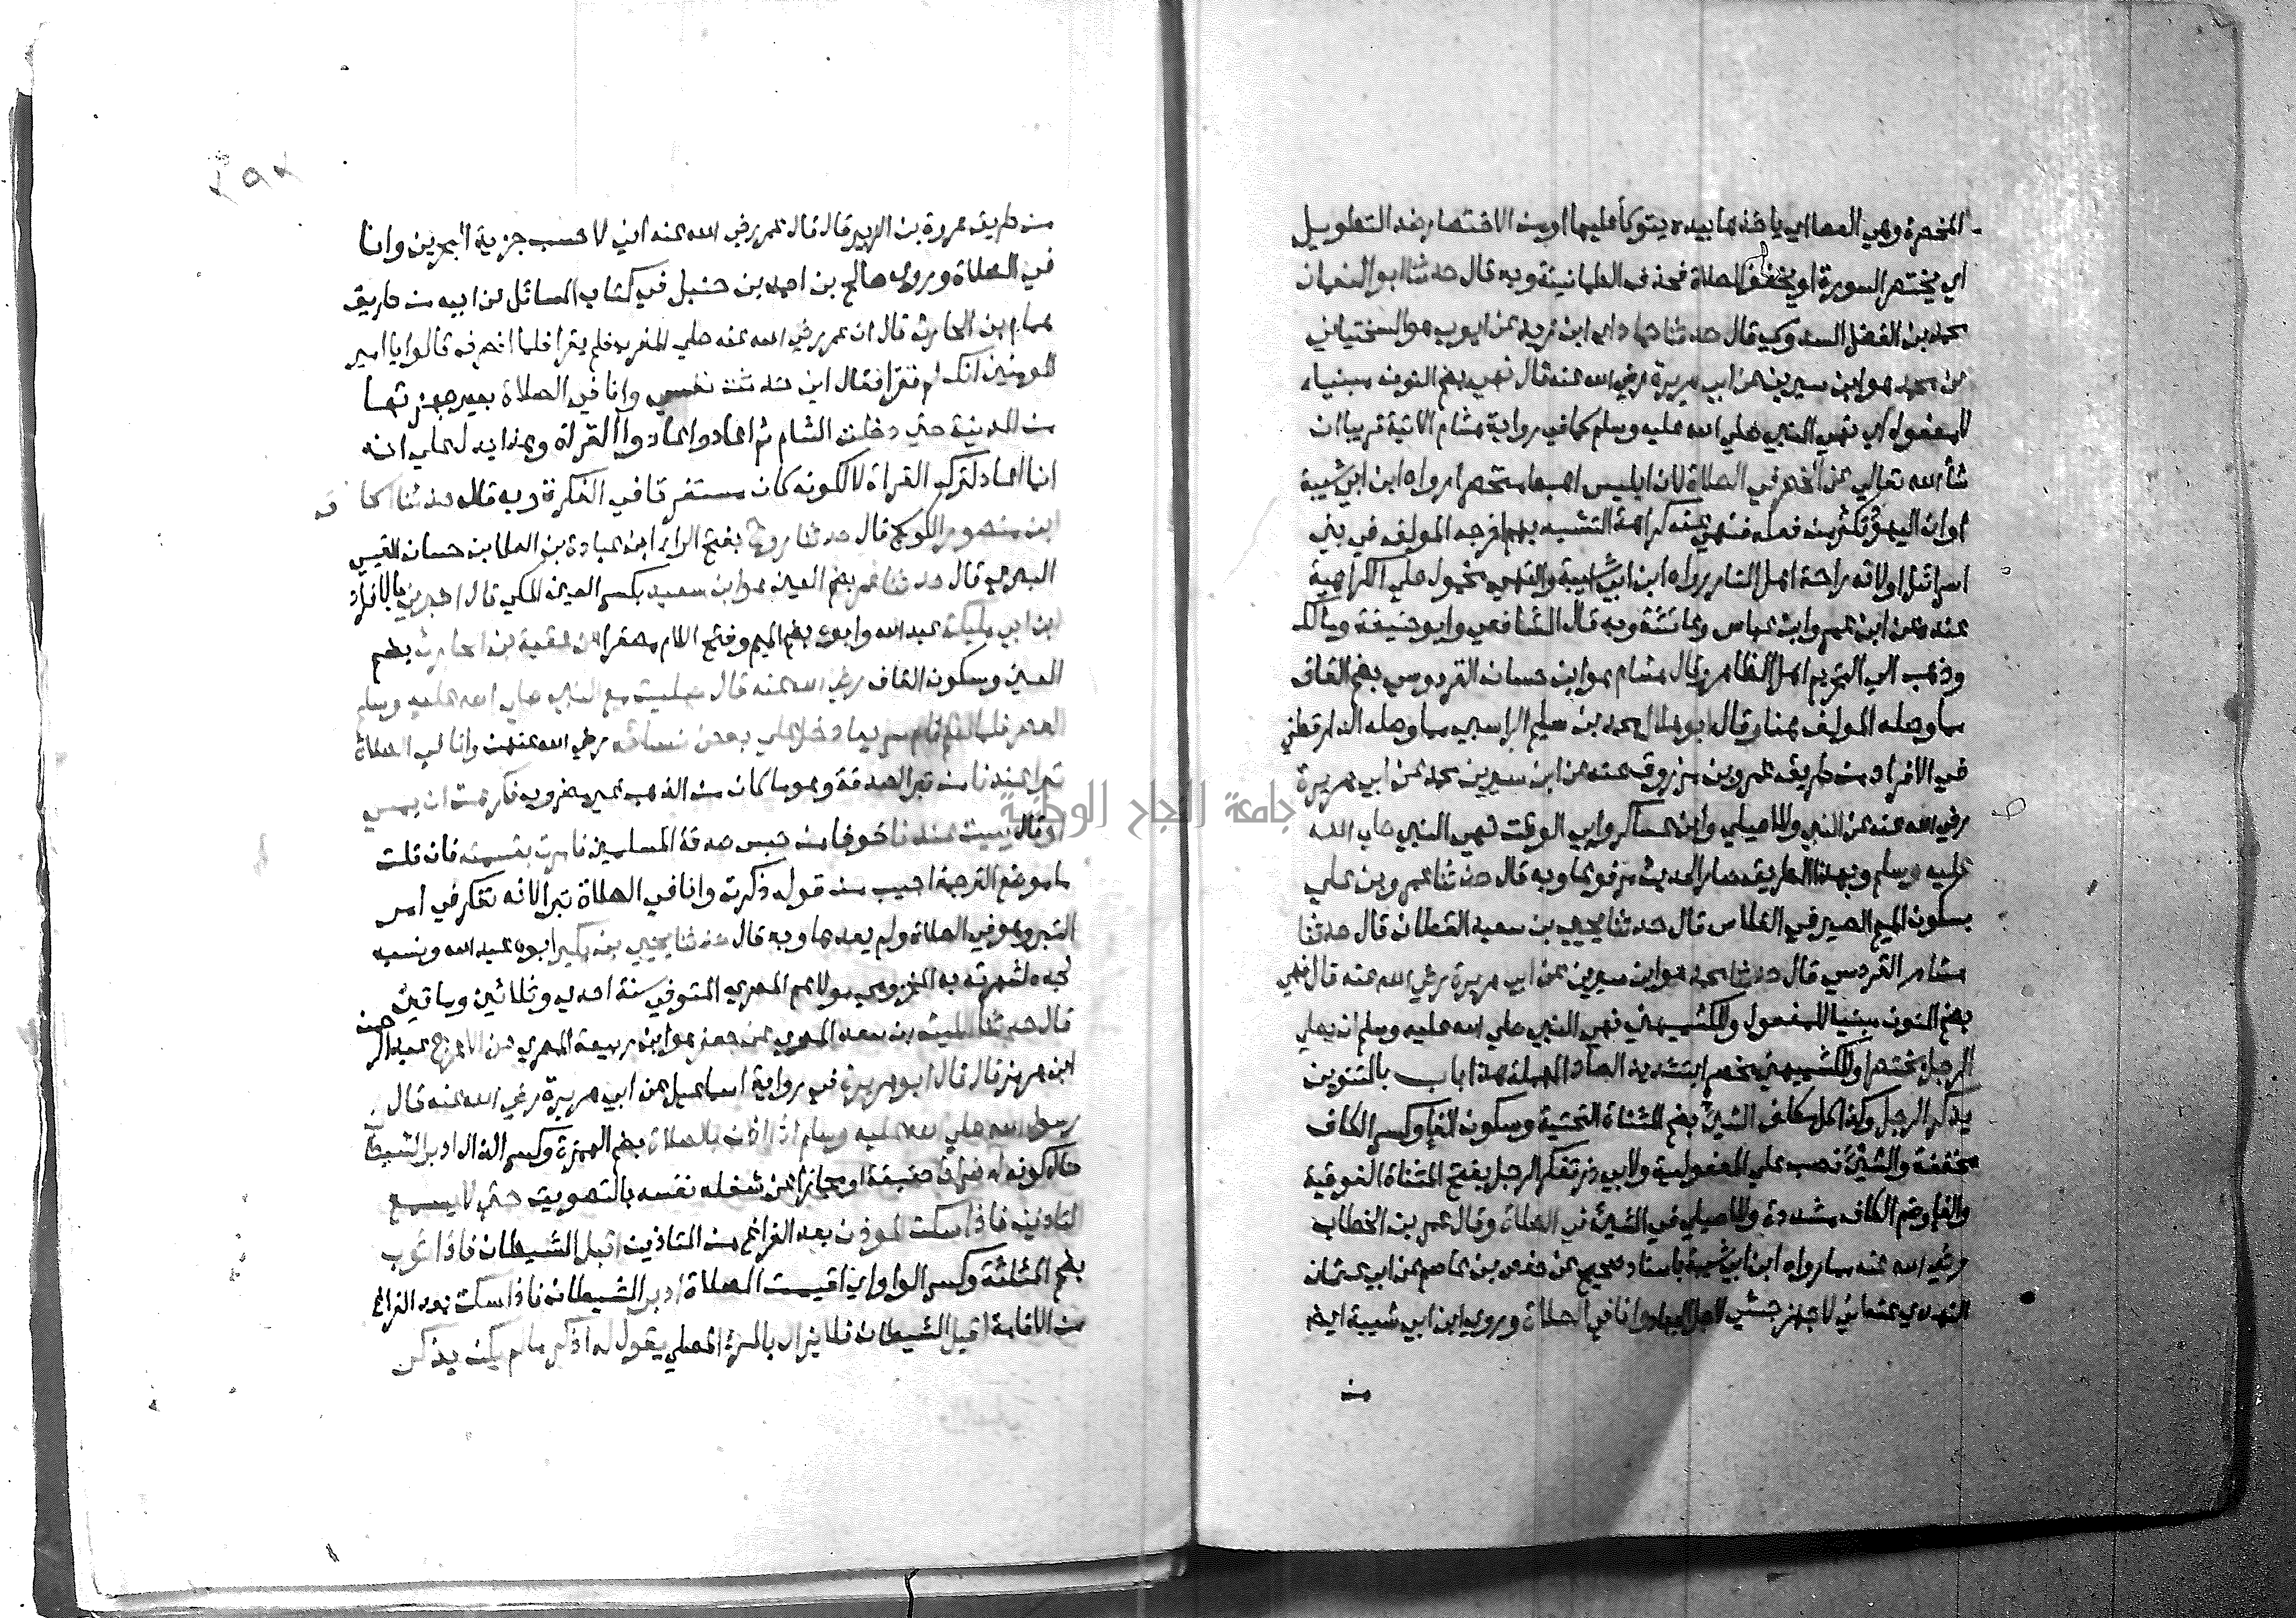 المخصرة وهي العصا اي ياخذها بيده يتوكأ عليها او من الاختصار ضد التطويل
اي يختصر السورة او يخفف الصلاة فيحذف الطمانينة وبه قال حدثنا ابو النعمان
محمد بن الفضل السدوسي قال حدثنا حماد اي ابن زيد عن ايوب هو السختياني
عن محمد هو ابن سيرين عن ابي هريرة رضي الله عنه قال نهي بضم النون مبنيا
للمفعول اي نهي النبي صلي الله عليه وسلم كما في رواية هشام الاتية قريبا ان
شأ الله تعالي عن الخصر في الصلاة لان ابليس اهبط متخصرا رواه ابن ابي شيبة
او ان اليهود تكثر من فعله فنهي عنه كراهة التشبه بهم اخرجه المولف في بني
اسرائيل او لانه راحة اهل النار رواه ابن ابي شيبة والنهي محمول علي الكراهية
عند عن ابن عمر وابن عباس وعائشة وبه قال الشافعي وابو حنيفة ومالك
وذهب الي التحريم اهل الظاهر وقال هشام هو ابن حسان القردوسي بضم القاف
مما وصله المولف هنا وقال ابو هلال محمد بن سليم الراسبي مما وصله الدارقطني
في الافراد من طريق عمرو بن مرزوق عنه عن ابن سيرين محمد عن ابي هريرة
رضي الله عنه عن النبي وللاصيلي وابن عساكر وابي الوقت نهي النبي صلي الله
عليه وسلم وبهذا الطريق صار الحديث مرفوعا وبه قال حدثنا عمرو بن علي
بسكون الميم الصيرفي الفلاس قال حدثنا يحيي بن سعيد القطان قال حدثنا
هشام القردسي قال حدثنا محمد هو ابن سيرين عن ابي هريرة رضي الله عنه قال نهي
بضم النون مبنيا للمفعول وللكشميهني نهي النبي صلي الله عليه وسلم ان يصلي
الرجل مختصرا وللكشميهني مخصرا بتشديد الصاد المهملة هذا باب بالتنوين
يذكر الرجل وكذا كل مكلف الشيئ بضم المثناة التحتية وسكون الفا وكسر الكاف
مخففة والشيئ نصب علي المفعولية ولابي ذر تفكر الرجل بفتح المثناة الفوقية
والفا وضم الكاف مشددة وللاصيلي في الشيئ في الصلاة وقال عمر بن الخطاب
رضي الله عنه مما رواه ابن ابي شيبة باسناد صحيح عن حفص بن عاصم عن ابي عثمان
النهدي عنه اني لاجهز جيشي لاجل الجهاد وانا في الصلاة وروي ابن ابي شيبة ايضا
من
من طريق عروة بن الزبير قال قال عمر رضي الله عنه اني لاحسب جزية البحرين وانا
في الصلاة وروي صالح بن احمد بن حنبل في كتاب المسائل عن ابيه من طريق
همام بن الحارث قال ان عمر رضي الله عنه صلي المغرب فلم يقرا فلما انصرف قالوا يا امير
المومنين انك لم تقرا فقال اني حدثت نفسي وانا في الصلاة بعير جهزتها
من المدينة حتي دخلت الشام ثم اعاد واعادوا القرأة وهذا يدل علي انه
انما اعاد لترك القراة لا لكونه كان مستغرقا في الفكرة وبه قال حدثنا اسحاق
ابن منصور الكوسج قال حدثنا روح بفتح الرا ابن عبادة بن العلا بن حسان القيسي
البصري قال حدثنا عمر بضم العين هو ابن سعيد بكسر العين المكي قال اخبرني بالافراد
ابن ابي مليكة عبد الله وابوه بضم الميم وفتح اللام مصغرا عن عقبة بن الحارث بضم
العين وسكون القاف رضي الله عنه قال صليت مع النبي صلي الله عليه وسلم
العصر فلما سلم قام سريعا دخل علي بعض نسائه رضي الله عنهن وانا في الصلاة
تبرا عندنا من تبر الصدقة وهو ما كان من الذهب غير مضروب فكرهت ان يمسي
او قال يبيت عندنا خوفا من حبس صدقة المسلمين فامرت بقسمته فان قلت
ما موضع الترجمة اجيب من قوله ذكرت وانا في الصلاة تبرا لانه تفكر في امر
التبر وهو في الصلاة ولم يعدها وبه قال حدثنا يحيي بن بكير ابوه عبد الله ونسبه
لجده لشهرته به المخزومي مولاهم المصري المتوفي سنة احدي وثلاثين ومايتين
قال حدثنا الليث بن سعد المصري عن جعفر هو ابن ربيعة المصري عن الاعرج عبد الرحمن
ابن هرمز قال قال ابو هريرة في رواية اسماعيل عن ابي هريرة رضي الله عنه قال
رسول الله صلي الله عليه وسلم اذا اذن بالصلاة بضم الهمزة وكسر الذال ادبر الشيطان
حال كونه له ضراط حقيقة او مجازا عن شغله نفسه بالتصويت حتي لا يسمع
التاذين فاذا سكت الموذن بعد الفراغ من التاذين اقبل الشيطان فاذا ثوب
بضم المثلثة وكسر الواو اي اقيمت الصلاة ادبر الشيطان فاذا سكت بعد الفراغ
من الاقامة اقبل الشيطان فلا يزال بالمرء المصلي يقول له اذكر ما لم يكن يذكر
جامعة النجاح الوطنية